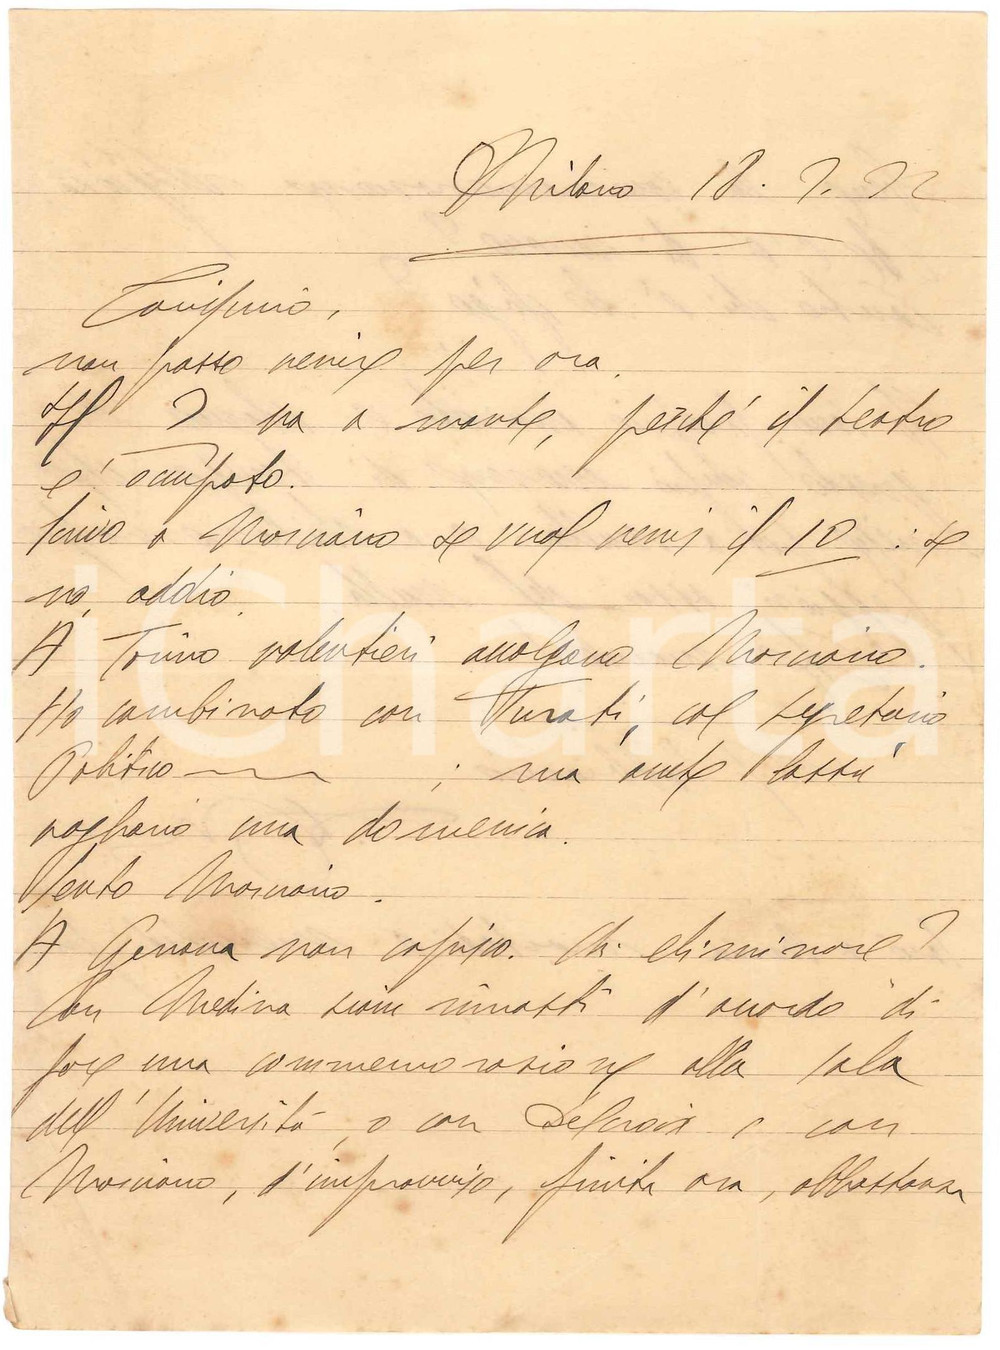 Milano 18. 2. 22
Carissimo,
non posso venire per ora.
Il 2 va a monte, perché il teatro
è occupato.
Scrivo a Marciano se vuol venir il 10 : se
no, addio.
A Torino volentieri Marciano.
Ho combinato con Turati, col segretario
Politico ; ma anche lassù
vogliono una domenica.
Sento Marciano.
A Genova non capisco. Chi eliminare?
Con Medina siam rimasti d'accordo di
fare una commemorazione alla sala
dell'Università, o con Delcroix o con
Marciano, d'improvviso, finita ora, abbastanza
iCharta